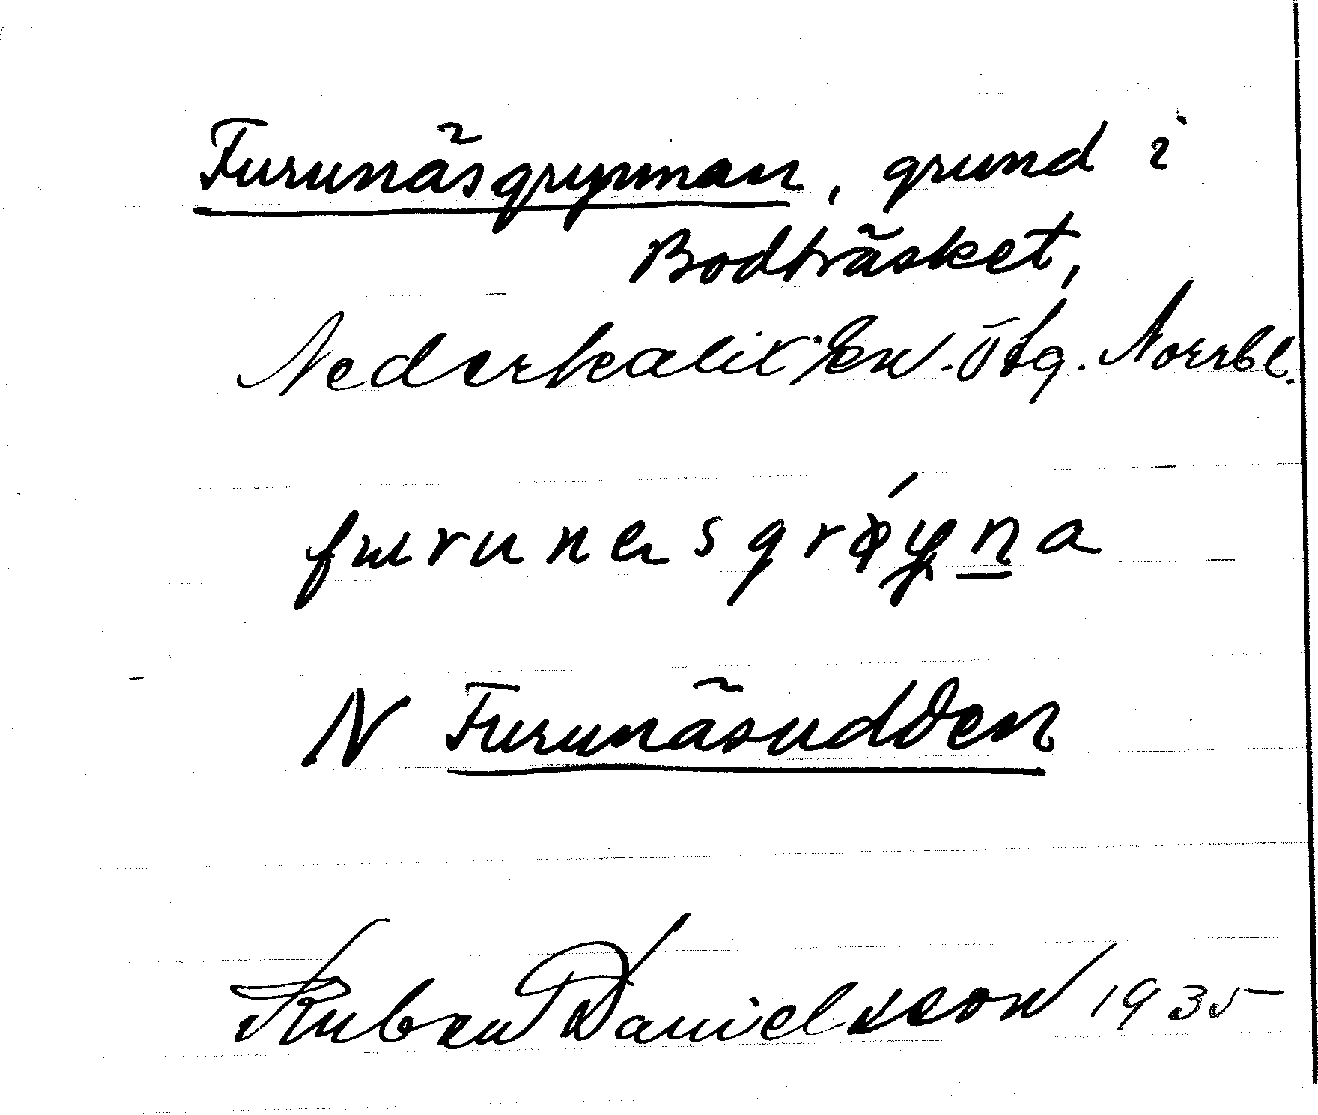 Furunäsgrynnan, grund i
Bodträsket,
Nederkalix sn. Östg. Norrbl.
furunesgrøyna
N Furunäsudden
Ruben Danielsson 1935